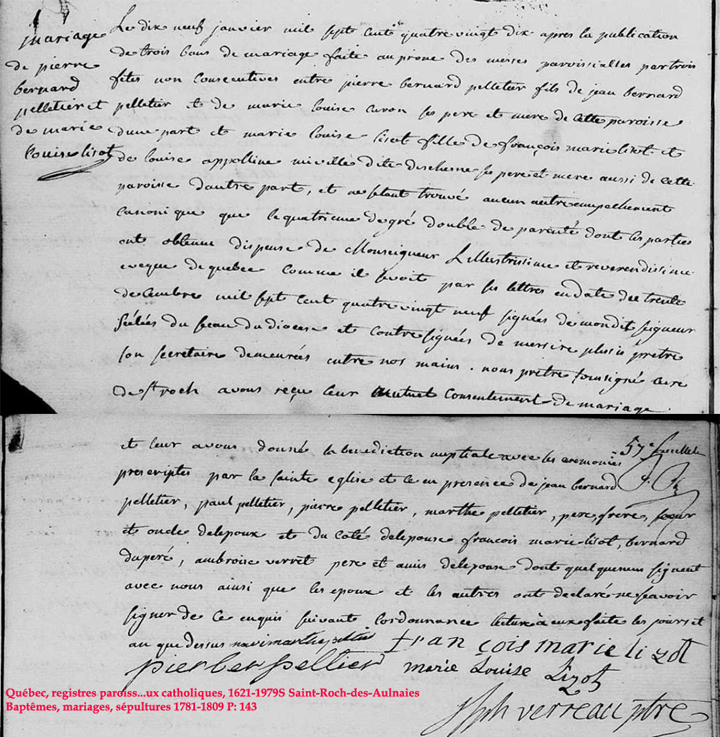 mariage
de pierre
bernard
pelletier et
de marie
louise lisot
Le dix neuf janvier mil sept cent quatre vingt dix après la publication
de trois bans de mariage faite au prone des messes paroissialles par trois
fetes non consecutives entre pierre bernard pelletier fils de jean bernard
pelletier et de marie louise caron ses pere et mere de cette paroisse
dune part et marie louise lisot fille de françois marie lisot et
de louise appolline miville dite deschene ses pere et mere aussi de cette
paroisse dautre part, et ne sestant trouvé aucun autre empechement
canonique que le quatrieme degré double de parenté dont les parties
ont obtenue dispense de Monseigneur Lillustrissime et reverendissime
eveque de quebec comme il par ses lettres en date de trente
decembre mil sept cent quatre vingt neuf signées de mondit seigneur
sélées du sceau du diocese et contresignées de messire plessis pretre
son secretaire demeurées entre nos mains. nous pretre soussigné curé
de st roch avons reçu leur mutuel consentement de mariage
57e feuillet
et leur avons donné la benediction nuptiale avec les ceremonies
prescriptes par la sainte eglise et ce en presence de jean bernard
pelletier, paul pelletier, pierre pelletier, marthe pelletier, pere, frere, soeur
et oncle delepoux et du coté delepouse françois marie lisot, bernard
duperé, ambroise verrit pere et amis delepouse dont quelquesuns signent
avec nous ainsi que les epoux et les autres ont declaré ne scavoir
signer de ce enquis suivant lordonnance lecture à eux faite les jours et
an que dessus marimarthe
françois marie lizot
pier ber pelletier marie Louise Lizot
Jsph verreau ptre
Québec, registres paroiss...ux catholiques, 1621-1979S Saint-Roch-des-Aulnaies
Baptêmes, mariages, sépultures 1781-1809 P: 143